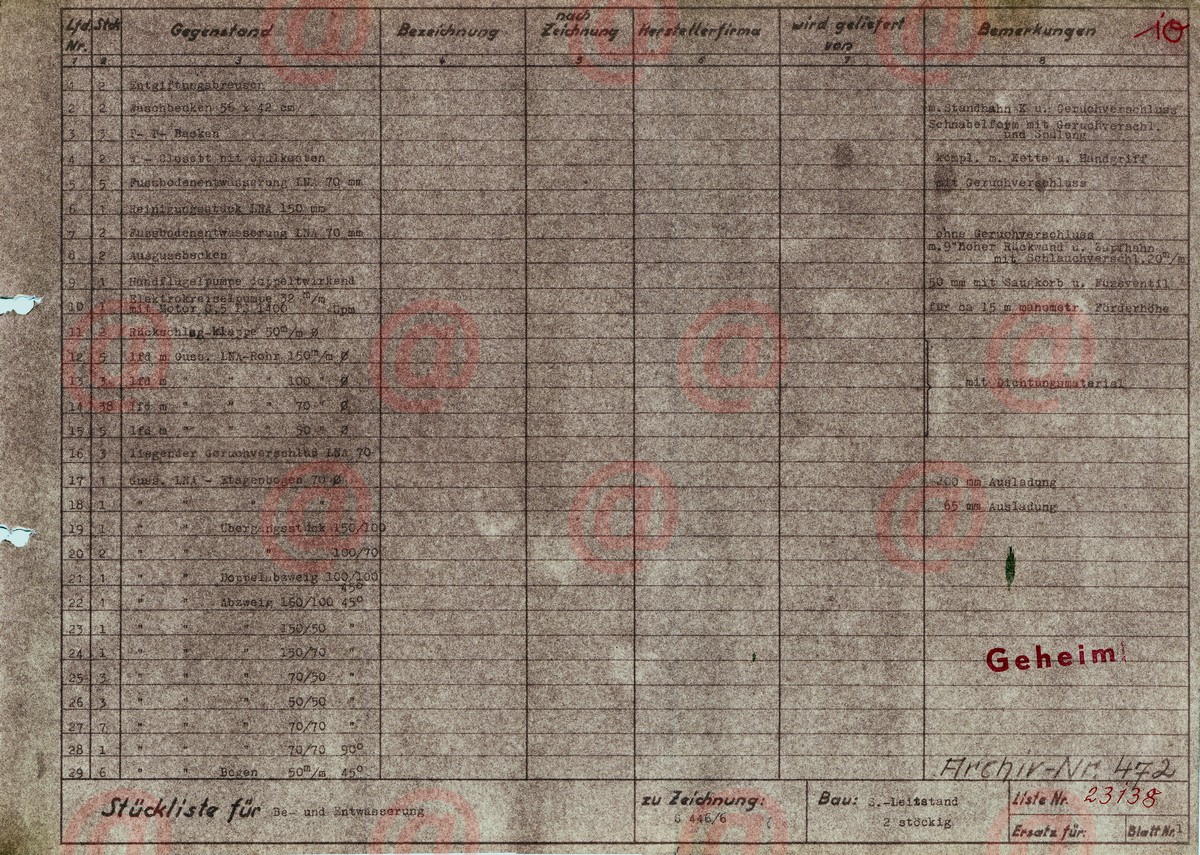 Lfd. Stck Gegenstand Bezeichnung nach Zeichnung Herstellerfirma wird geliefert von Bemerkungen 10
Nr.
1 2 3 4 5 6 7 8
1 2 Entgiftungsbrausen
2 2 Waschbecken 56 x 42 cm m.Standhahn K u. Geruchverschluss
3 3 P- P- Becken Schnabelform mit Geruchverschl.
und Spülung
4 2 Closett mit Spülkasten kompl. m. Kette u. Handgriff
5 5 Fussbodenentwässerung LNA 70 mm mit Geruchverschluss
6 1 Reinigungsstück LNA 150 mm
7 2 Fussbodenentwässerung LNA 70 mm ohne Geruchverschluss
8 2 Ausgussbecken m.9"hoher Rückwand u. Zapfhahn
mit Schlauchverschl.20m/m
9 1 Handflügelpumpe doppeltwirkend 50 mm mit Saugkorb u. Fuzsventil
Elektrokreiselpumpe 32 m/m
10 1 mit Motor 0.5 PS 1400 Upm für ca 15 m manometr. Förderhöhe
11 2 Rückschlag-klappe 50m/m Ø
12 5 lfd m Guss. LNA-Rohr 150m/m Ø
13 3 lfd m " " " 100 " Ø mit Dichtungsmaterial
14 38 lfd m " " " 70 " Ø
15 5 lfd m " " " 50 " Ø
16 3 liegender Geruchverschlus LNA 70
17 1 Guss. LNA - Etagenbogen 70 Ø 200 mm Ausladung
18 1 " " " " 65 mm Ausladung
19 1 " " Übergangsstück 150/100
20 2 " " " 100/70
21 1 " " Doppelabzweig 100/100
45°
22 1 " " Abzweig 150/100 45°
23 1 " " " 150/50 "
24 1 " " " 150/70 "
25 3 " " " 70/50 "
26 3 " " " 50/50 "
27 7 " " " 70/70 "
28 1 " " " 70/70 90°
29 6 " " Bogen 50m/m 45°
Geheim!
Archiv-Nr. 472
Stückliste für Be- und Entwässerung
zu Zeichnung:
S 446/6
Bau: S.-Leitstand
2 stöckig
Liste Nr. 23138
Ersatz für: Blatt Nr. 1